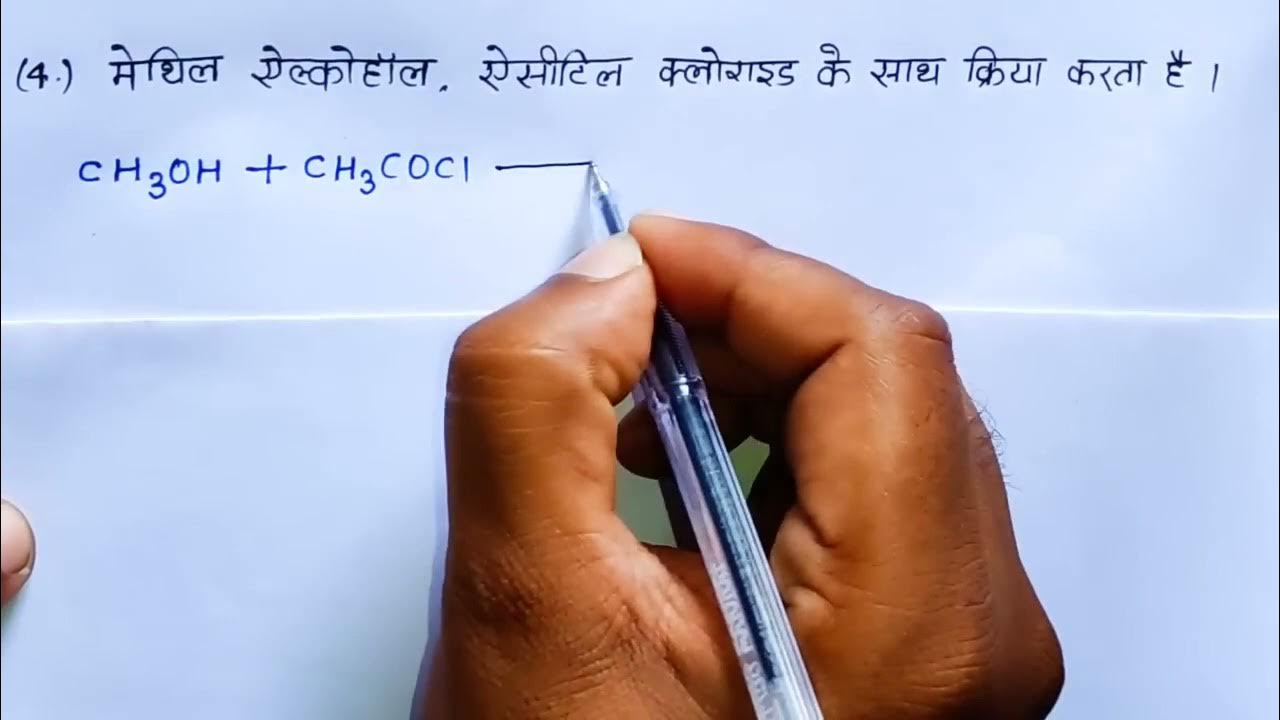 (4.) मेथिल ऐल्कोहॉल, ऐसीटिल क्लोराइड के साथ क्रिया करता है ।
CH₃OH + CH₃COCl